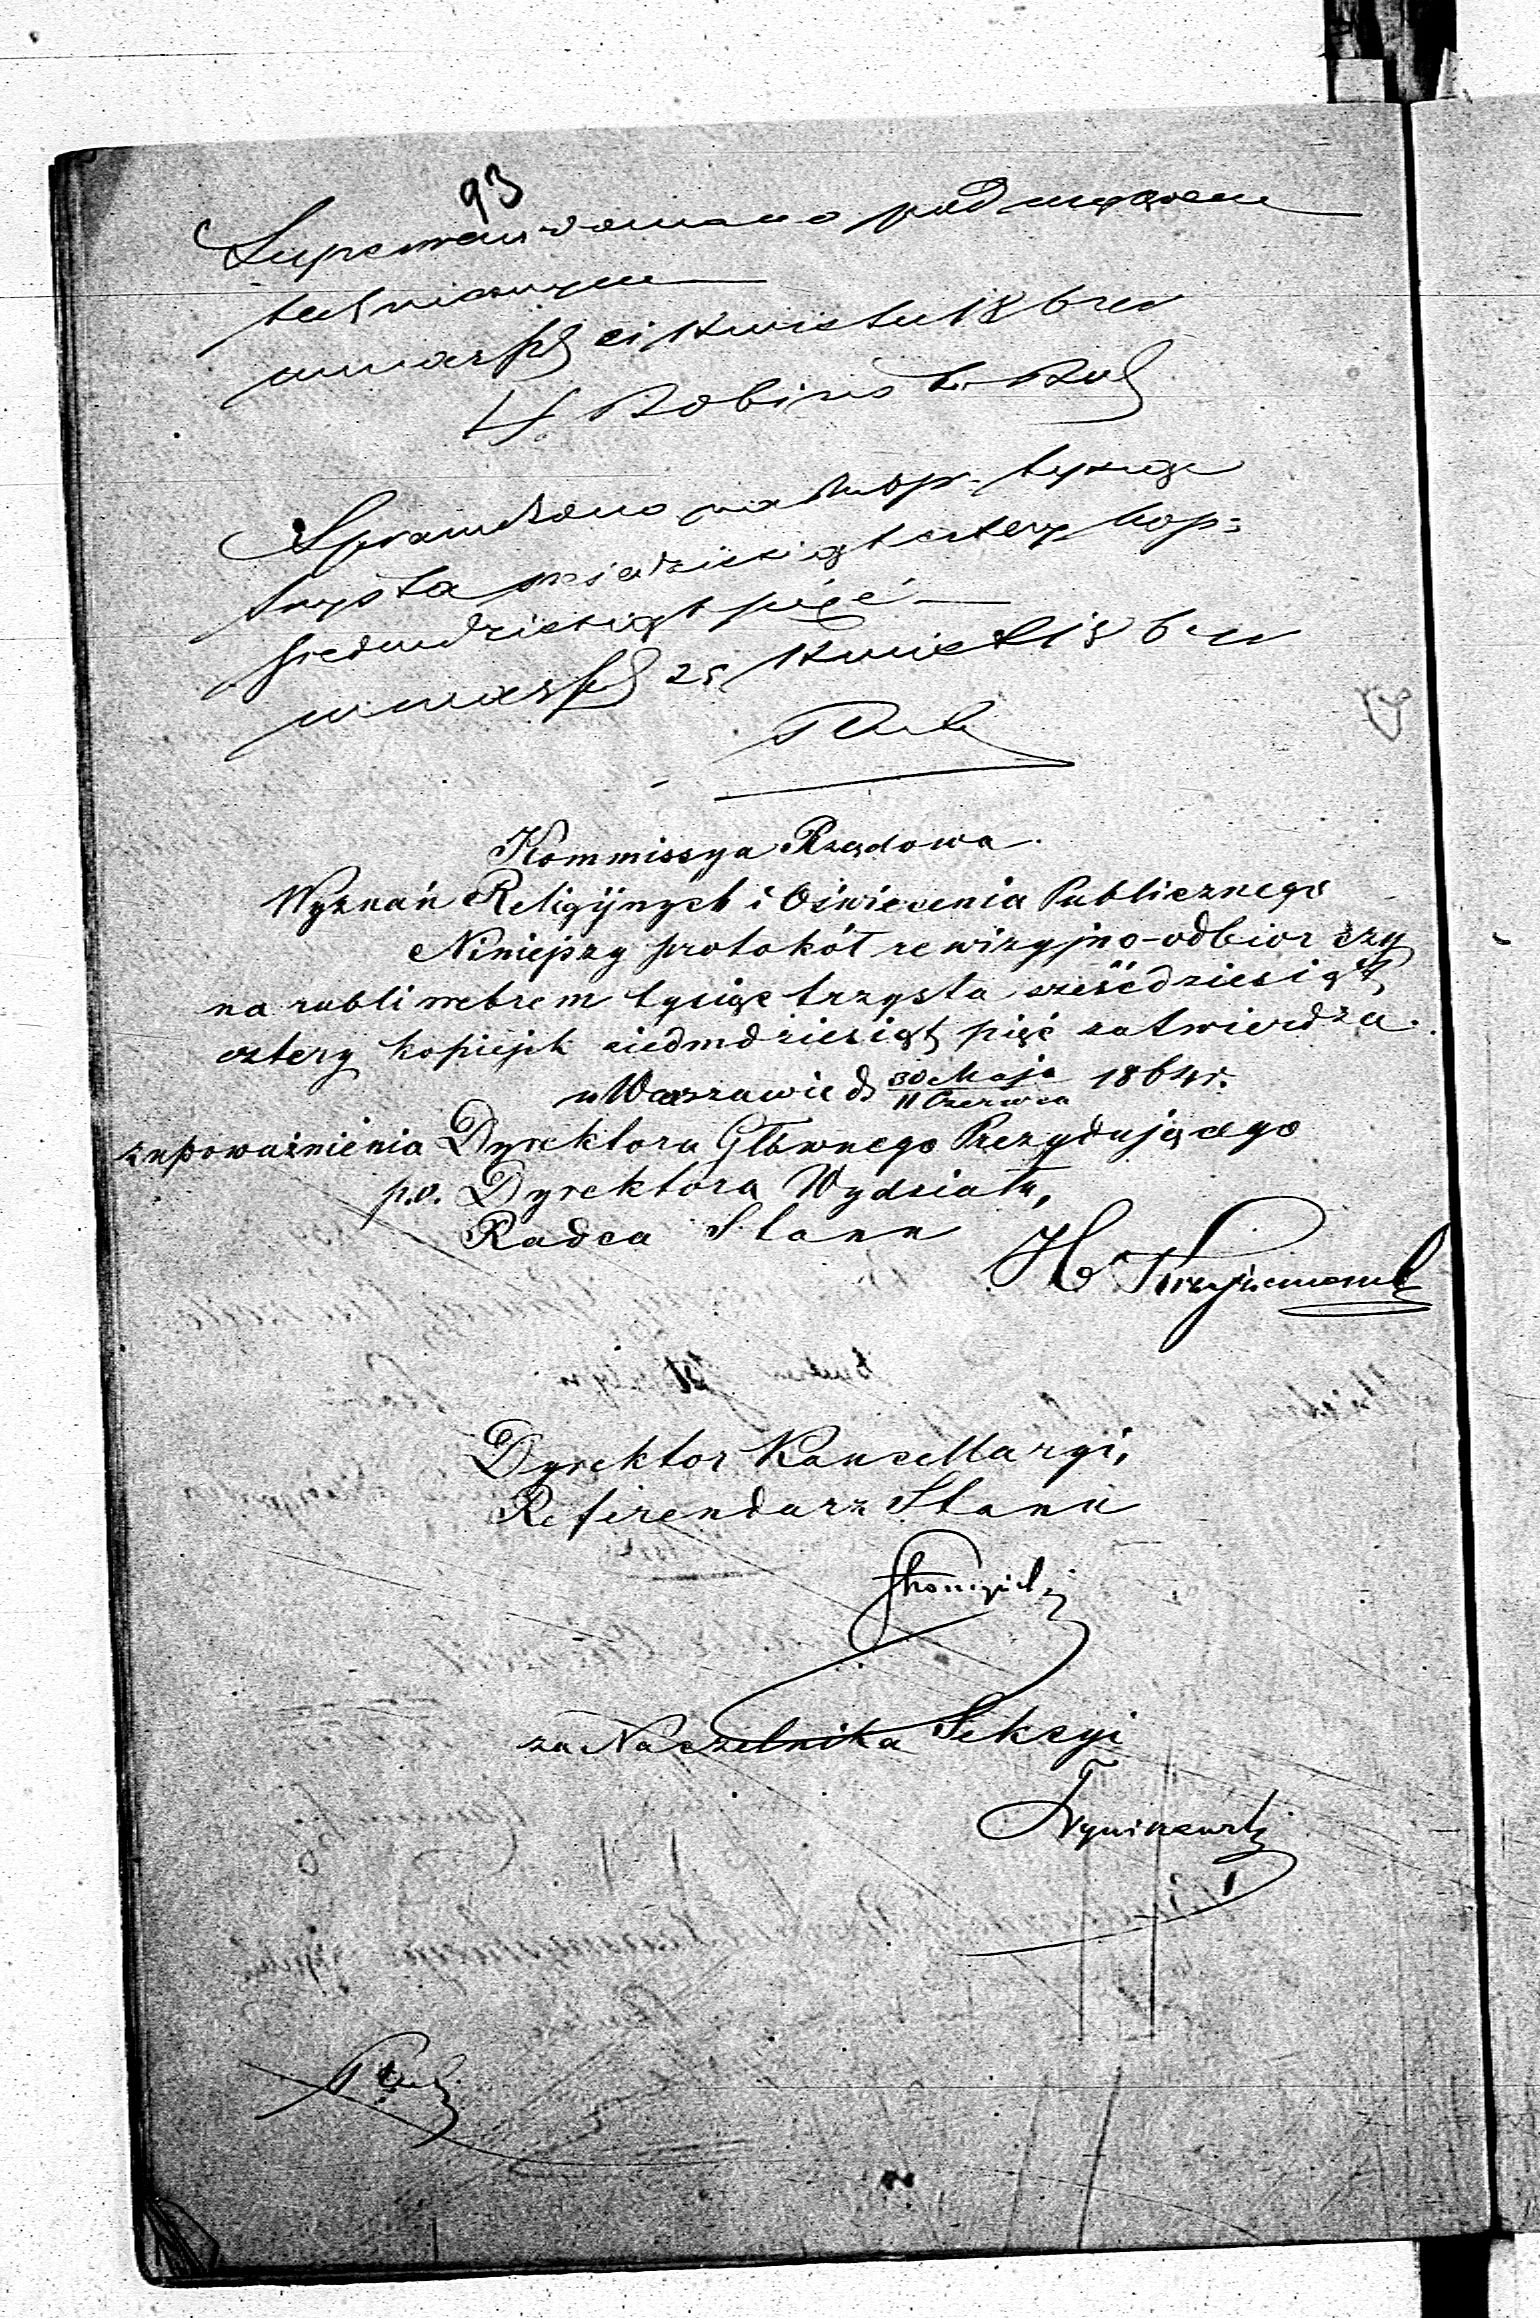 93
Superrewidowano pod względem
technicznym
w Warsz d Kwietnia 1864 r
Sprawdzono na Rubsr. tysiąc
trzysta sześćdziesiąt cztery kop:
siedmdziesiąt pięć
w Warsz d 25 Kwiet 1864 r
Kommissya Rządowa.
Wyznań Religijnych i Oświecenia Publicznego
Niniejszy protokół rewizyjno-odbiorczy
na rubli srebrem tysiąc trzysta sześćdziesiąt
cztery kopiejek siedmdziesiąt pięć zatwierdza.
w Warszawie d 30 Maja / 11 Czerwca 1864 r.
z upoważnienia Dyrektora Głównego Prezydującego
p.o. Dyrektora Wydziału,
Radca Stanu
H Krzyżanowski
Dyrektor Kancellaryi,
Referendarz Stanu
za Naczelnika Sekcyi